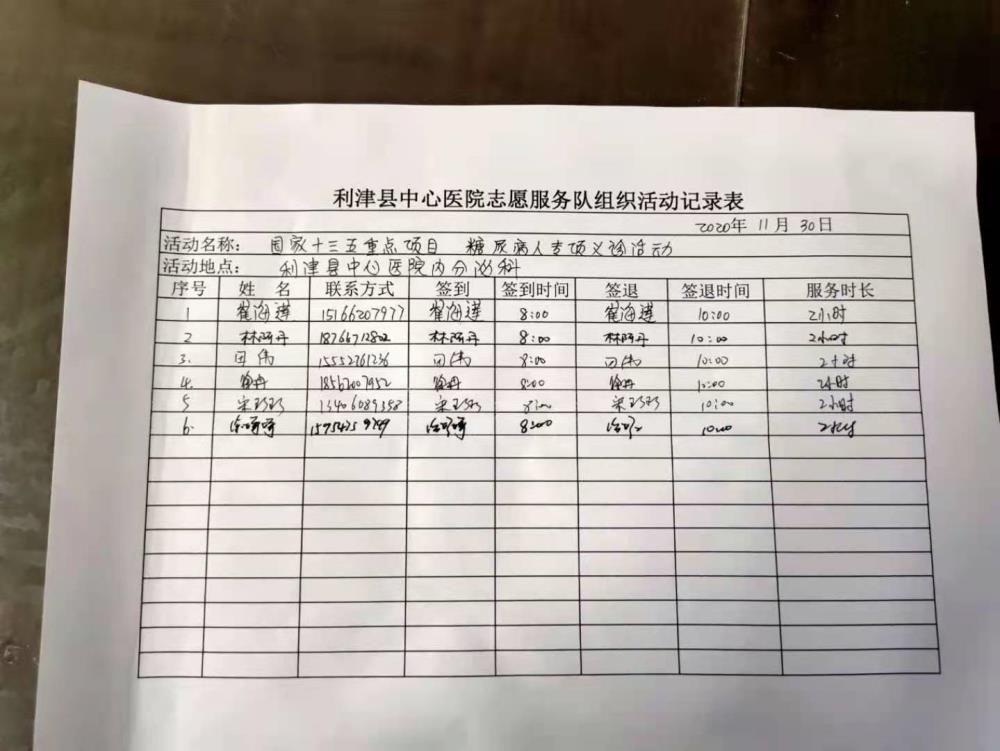 利津县中心医院志愿服务队组织活动记录表
2020年 11月 30日
活动名称： 国家十三五重点项目 糖尿病人专项义诊活动
活动地点： 利津县中心医院内分泌科
序号 姓 名 联系方式 签到 签到时间 签退 签退时间 服务时长
1 崔海莲 15166207977 崔海莲 8:00 崔海莲 10:00 2小时
2 18766712802 8:00 10:00 2小时
3. 田伟 15552761236 田伟 8:00 田伟 10:00 2小时
4. 18562007952 8:00 10:00 2小时
5 宋珍珍 13406089358 宋珍珍 8:00 宋珍珍 10:00 2小时
6. 8:00 10:00 2小时